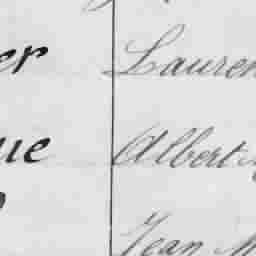 er Lauren
ue Albert
Jean M